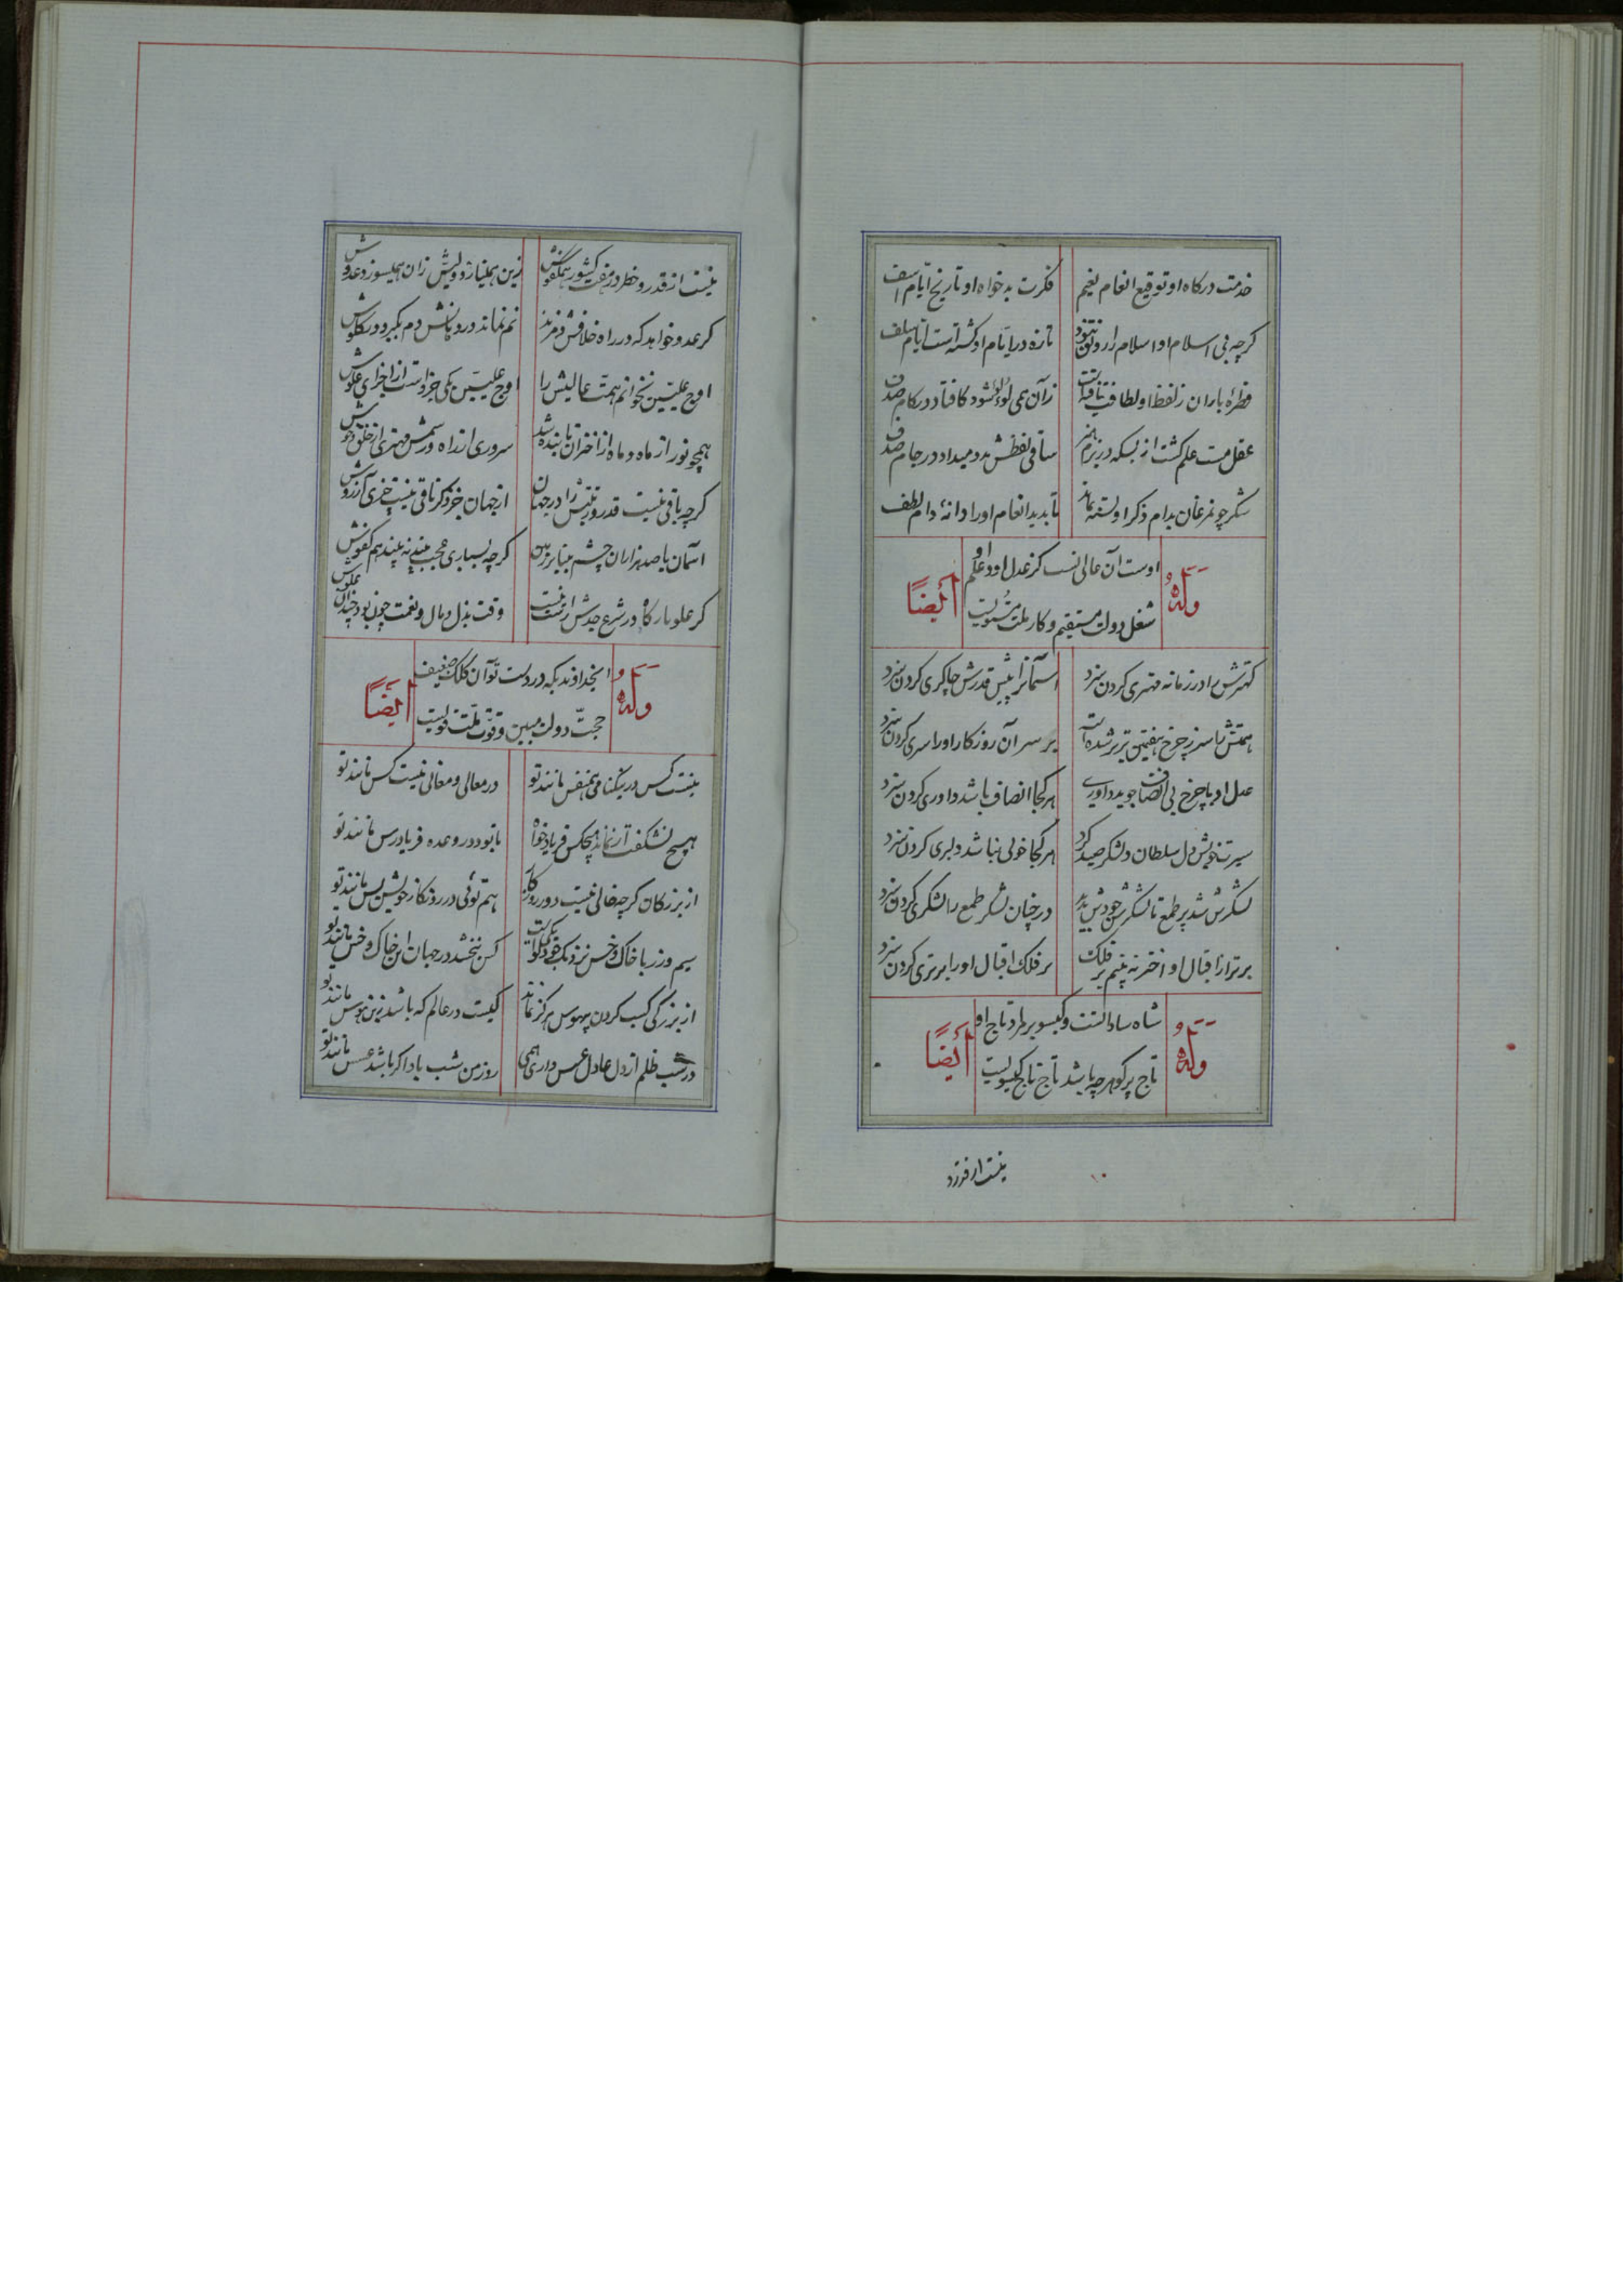 خدمت درکاه او توقیع انعام نعیم
فکرت بدخواه او تاریخ ایام اسف
کرچه بی اسلام او اسلام را رونق نبود
تازه در ایام او کشته است ایام سلف
قطرهٔ باران ز لفظ او لطافت یافتست
زآن همی لؤلؤ شود کافتاد در کام صدف
عقل مست علم کشت از بسکه در بزم هنر
ساقی لفظش بدو میداد در جام صدف
شکر چو مرغان بدام ذکر او بسته بماند
تا بدید انعام او را دانهٔ دام لطف
وله
اوست آن عالی نسب کز عدل او و علم او
شغل دولت مستقیم و کار ملت مستویست
ایضاً
کهترش را در زمانه مهتری کردن سزد
آسمانرا پیش قدرش چاکری کردن سزد
همتش تا سر ز چرخ هفتمین برتر شده است
بر سر آن روزکار او را سری کردن سزد
عدل او با چرخ بی انصاف جوید داوری
هر کجا انصاف باشد داوری کردن سزد
سیرت خوبش دل سلطان و لشکر صید کرد
هر کجا خوبی نباشد دلبری کردن سزد
لشکرش شد پر طمع تا لشکرش جودش بدید
در چنان لشکر طمع را لشکری کردن سزد
برتر از اقبال او اختر نه بینم بر فلک
بر فلک اقبال او را برتری کردن سزد
وله
شاه ساداتست و کیسو بر طرد تاج او
تاج پر کوهر چه باشد تاج تاج کیسویست
ایضاً
نیست از قدر و خطر در هفت کشور همکفوش
زین همینازد ولیش زان همیسوزد عدوش
کر عدو خواهد که در راه خلافش دم زند
نم نماند در دهانش دم بکیرد در کلوش
اوج علیین نخوانم همت عالیش را
اوج علیین یکی جزو است از اجزای علوش
همچو نور از ماه و ماه از اختران تابنده شد
سروری از راه و رسمش مهتری از خلق و خوش
کرچه باقی نیست قدر و رتبتش را در جهان
از جهان جز ذکر باقی نیست چیزی آرزوش
آسمان با صد هزاران چشم بینا بر زمین
کرچه بسیاری عجب بیند نه بیند هم کفوش
کر علو بارکاه در شرع جدش راتبست
وقت بذل مال و نعمت چون بود چندان علوش
وله
ایخداوندیکه در دست تو آن کلک ضعیف
حجت دولت مبین و قوت ملت قویست
ایضاً
نیست کس در نیکنامی همنفس مانند تو
در معالی و معانی نیست کس مانند تو
هیچ نشکفت ار نماند هیچکس فریادخواه
تا بود در وعده فریادرس مانند تو
از بزرکان کرچه خالی نیست دور روزکار
هم توئی در روزکار خویش بس مانند تو
سیم و زر با خاک و خس نزدیک جود تو یکیست
کس نبخشد در جهان این خاک و خس مانند تو
از بزرکی کسب کردن بیهوس هرکز نماند
کیست در عالم که باشد زین هوس مانند تو
در شب ظلم از دل عادل عسس داری همی
روز من شب باد اکر باشد عسس مانند تو
نیست از قدر و